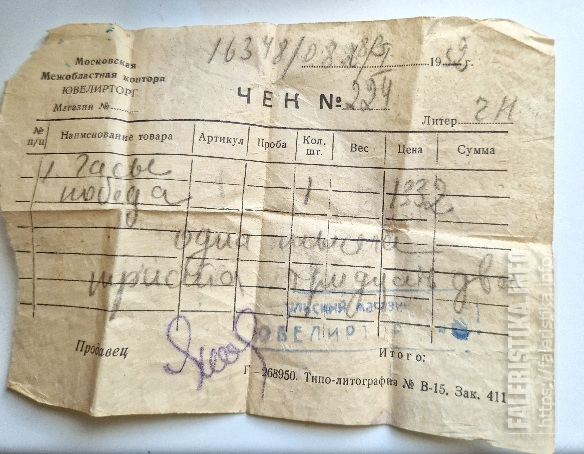 Московская
Межобластная контора
ЮВЕЛИРТОРГ
Магазин №
16348/08 19 59 г.
ЧЕК № 224
Литер
№ п/п Наименование товара Артикул Проба Кол. шт. Вес Цена Сумма
1 Часы
победа 1 1332
одна тысяча
триста тридцать две
ЮВЕЛИРТ
Продавец
Итого:
Г—268950. Типо-литография № В-15. Зак. 411
FALERISTIKA.INFO